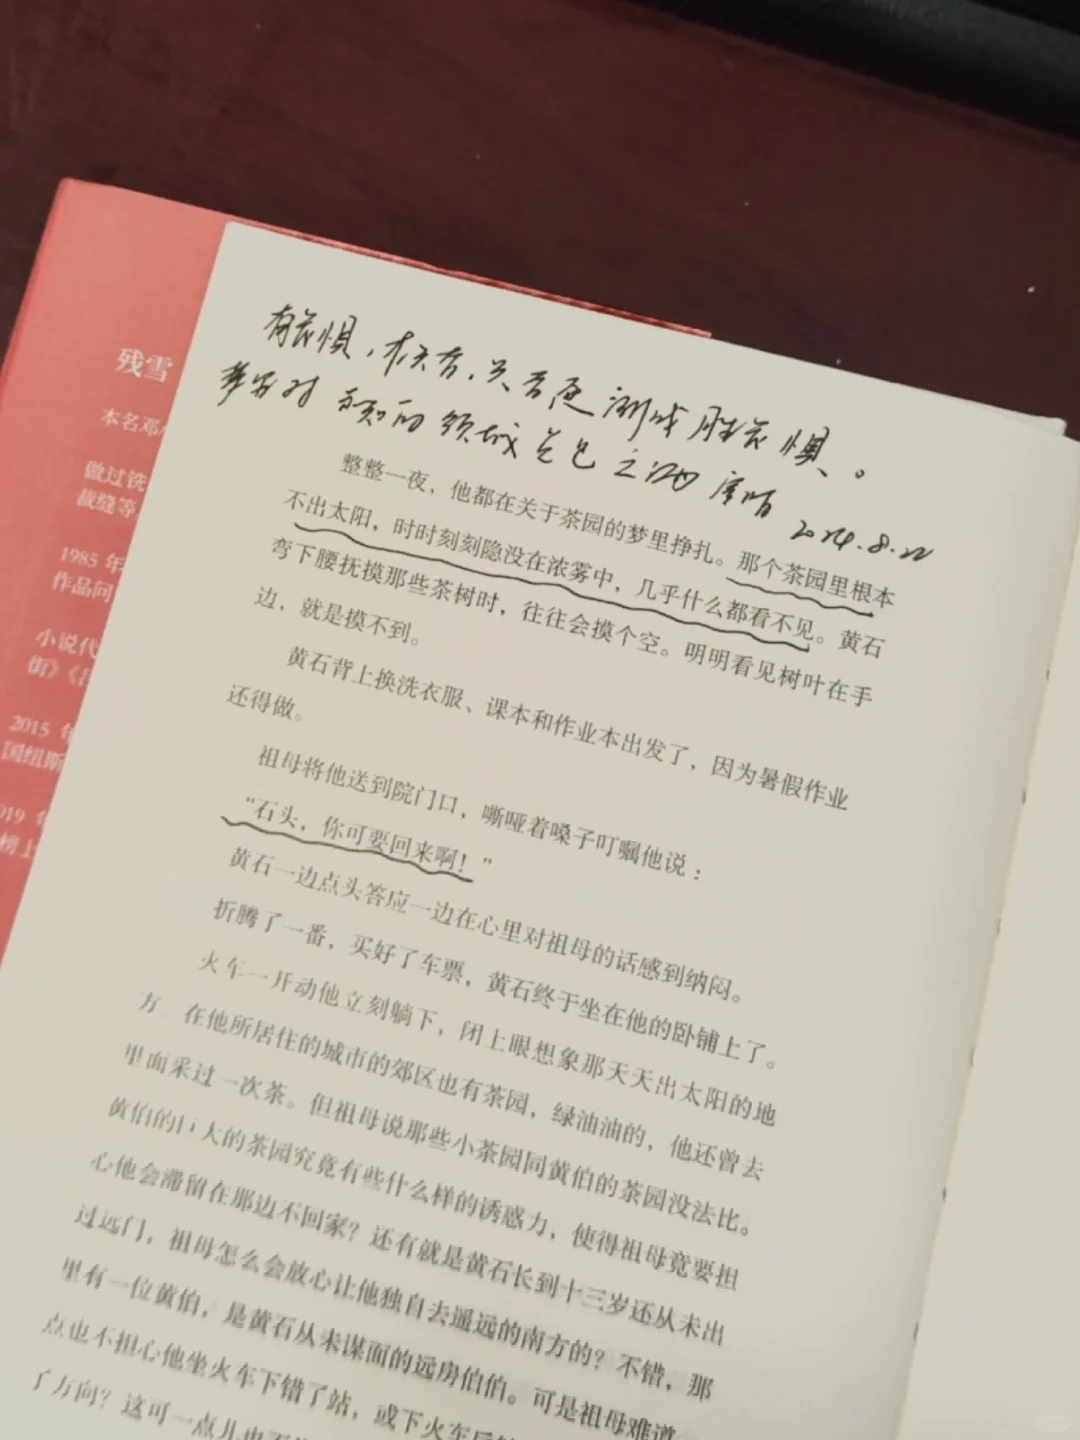 残雪
本名邓
做过铣
裁缝等
1985 年
作品问
小说代
街》《
2015 年
国纽斯
019 年
榜上
惧，
惧。
的领域
2024.8.22
整整一夜，他都在关于茶园的梦里挣扎。那个茶园里根本
不出太阳，时时刻刻隐没在浓雾中，几乎什么都看不见。黄石
弯下腰抚摸那些茶树时，往往会摸个空。明明看见树叶在手
边，就是摸不到。
黄石背上换洗衣服、课本和作业本出发了，因为暑假作业
还得做。
祖母将他送到院门口，嘶哑着嗓子叮嘱他说：
“石头，你可要回来啊！”
黄石一边点头答应一边在心里对祖母的话感到纳闷。
折腾了一番，买好了车票，黄石终于坐在他的卧铺上了。
火车一开动他立刻躺下，闭上眼想象那天天出太阳的地
方。在他所居住的城市的郊区也有茶园，绿油油的，他还曾去
里面采过一次茶。但祖母说那些小茶园同黄伯的茶园没法比。
黄伯的巨大的茶园究竟有些什么样的诱惑力，使得祖母竟要担
心他会滞留在那边不回家？还有就是黄石长到十三岁还从未出
过远门，祖母怎么会放心让他独自去遥远的南方的？不错，那
里有一位黄伯，是黄石从未谋面的远房伯伯。可是祖母难道
点也不担心他坐火车下错了站，或下火车后
了方向？这可一点儿也不